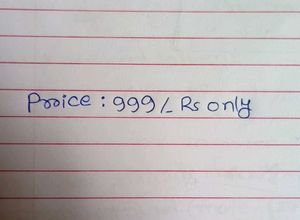 Price : 999/- Rs only